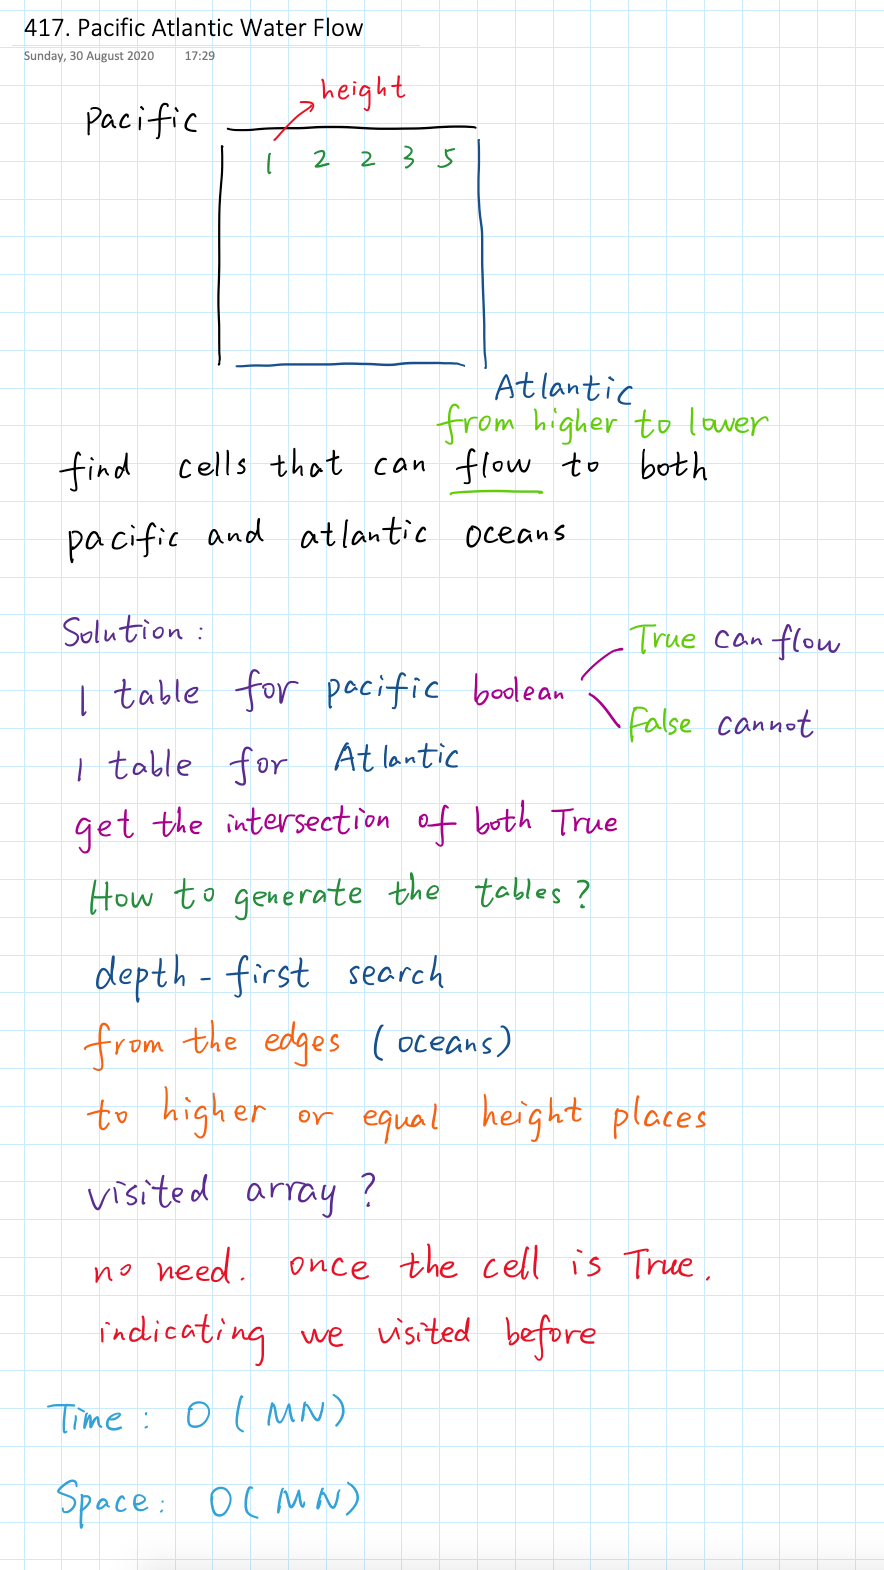 417. Pacific Atlantic Water Flow
Sunday, 30 August 2020 17:29
height
Pacific
1 2 2 3 5
Atlantic
from higher to lower
find cells that can flow to both
pacific and atlantic oceans
Solution :
True can flow
1 table for pacific boolean
False cannot
1 table for Atlantic
get the intersection of both True
How to generate the tables ?
depth - first search
from the edges ( oceans )
to higher or equal height places
visited array ?
no need. once the cell is True.
indicating we visited before
Time : O ( MN )
Space : O ( MN )